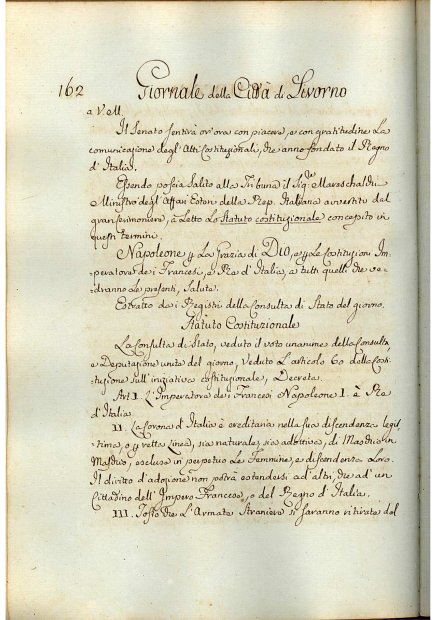 162 Giornale della Città di Livorno
a V. M.
Il Senato sentirà or'ora con piacere, e con gratitudine la
comunicazione degl'Atti Costituzionale, che anno fondato il Regno
d'Italia.
Essendo poscia salito alla Tribuna il Sig.re Mareschaldi
Ministro degl'Affari Esteri della Rep. Italiana avvertito dal
gran Cerimoniere, à letto lo Statuto costituzionale concepito in
questi termini.
Napoleone p. la Grazia di DIO, e p. le Costituzioni Im-
peratore de i Francesi, e Re d'Italia, a tutti quelli che ve-
dranno le presenti, salute.
Estratto da i Registri della Consulta di Stato del giorno.
Statuto Costituzionale
La Consulta di Stato, veduto il voto unanime della Consulta
e Deputazione unita del giorno, veduto l'articolo 60 della Costi-
tuzione sull'iniziativa costituzionale, Decreta.
Art. I. L'Imperatore de i Francesi Napoleone I. è Re
d'Italia
II. La Corona d'Italia è ereditaria nella sua discendenza legit-
tima, o p. retta Linea, sia naturale, sia adottiva, di Maschio in
Maschio, escluse in perpetuo le Femmine, e discendenza loro.
Il diritto d'adozione non potrà estendersi ad'altri, che ad'un
Cittadino dell'Impero Francese, o del Regno d'Italia.
III. Tosto che l'Armate Straniere si saranno ritirate dal